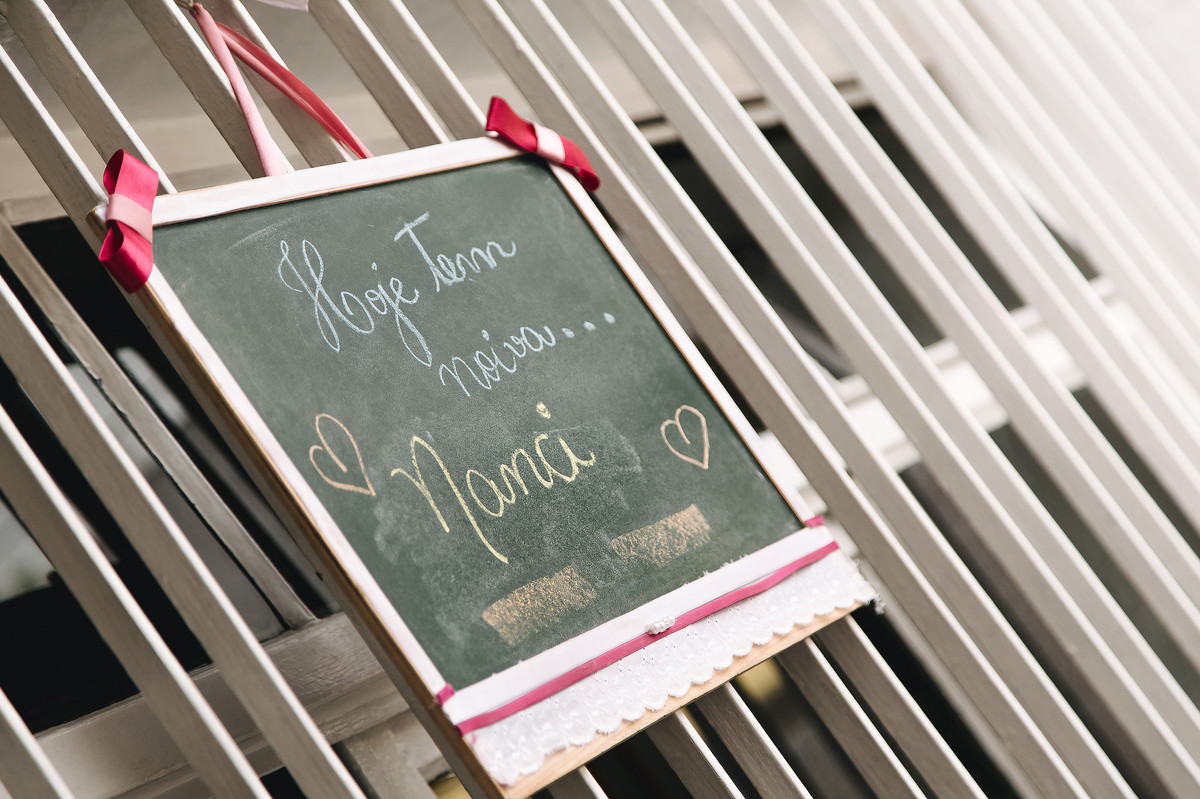 Hoje Tem
noiva...
Nanci